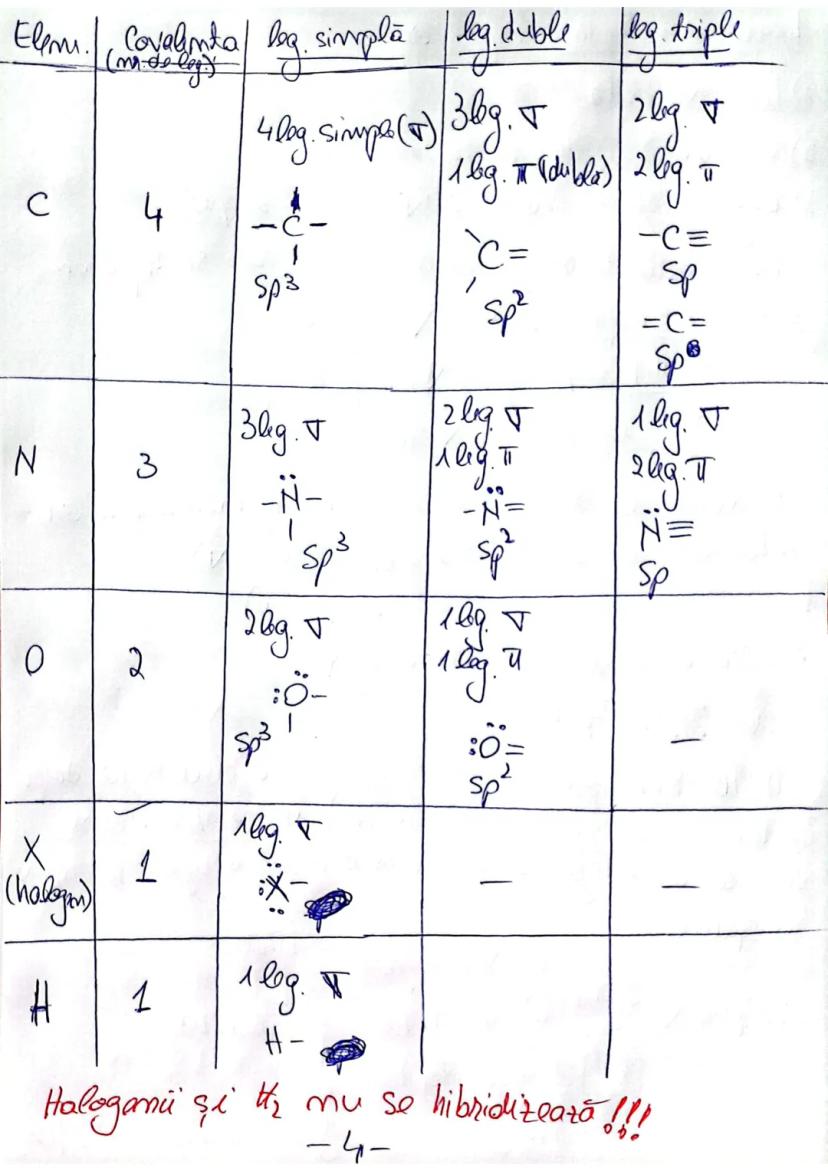 Elem. Covalenta leg. simplă leg. duble leg. triple
(nr. de leg.)
C 4
4 leg. simple (σ)
-C-
Sp³
3 leg. σ
1 leg. π (dublă)
C=
Sp²
2 leg. σ
2 leg. π
-C≡
Sp
=C=
Sp
N 3
3 leg. σ
-N̈-
Sp³
2 leg. σ
1 leg. π
-N̈=
Sp²
1 leg. σ
2 leg. π
N̈≡
Sp
O 2
2 leg. σ
:Ö-
Sp³
1 leg. σ
1 leg. π
:Ö=
Sp²
—
X 1
(halogen)
1 leg. σ
:Ẍ-
— —
H 1
1 leg. σ
H-
Halogenii și H₂ nu se hibridizează!!!
-4-